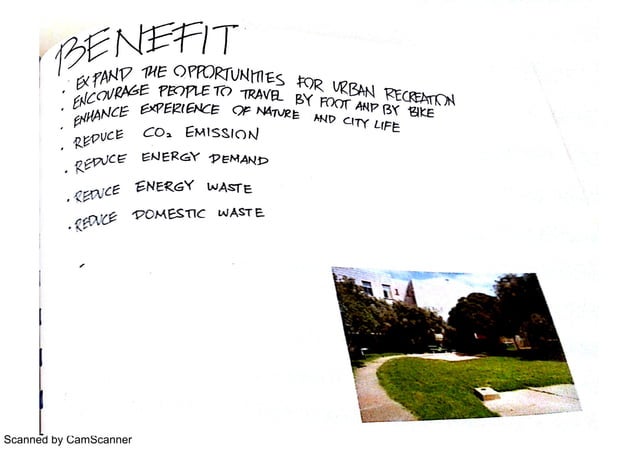 BENEFIT
· EXPAND THE OPPORTUNITIES FOR URBAN RECREATION
· ENCOURAGE PEOPLE TO TRAVEL BY FOOT AND BY BIKE
· ENHANCE EXPERIENCE OF NATURE AND CITY LIFE
· REDUCE CO₂ EMISSION
· REDUCE ENERGY DEMAND
· REDUCE ENERGY WASTE
· REDUCE DOMESTIC WASTE
Scanned by CamScanner